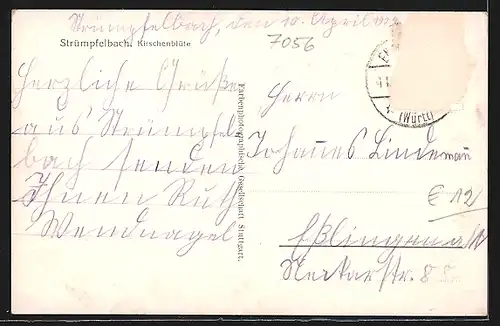 Strümpfelbach, den 10. April 19
7056
Strümpfelbach. Kirschenblüte
Herzliche Grüße
aus Strümpfel
bach senden
Ihnen Ruth
Wendnagel
Farbenphotographische Gesellschaft Stuttgart.
(Württ)
Herrn
Johannes Lindemann
€ 12
Eßlingen a/N
Neckarstr. 85